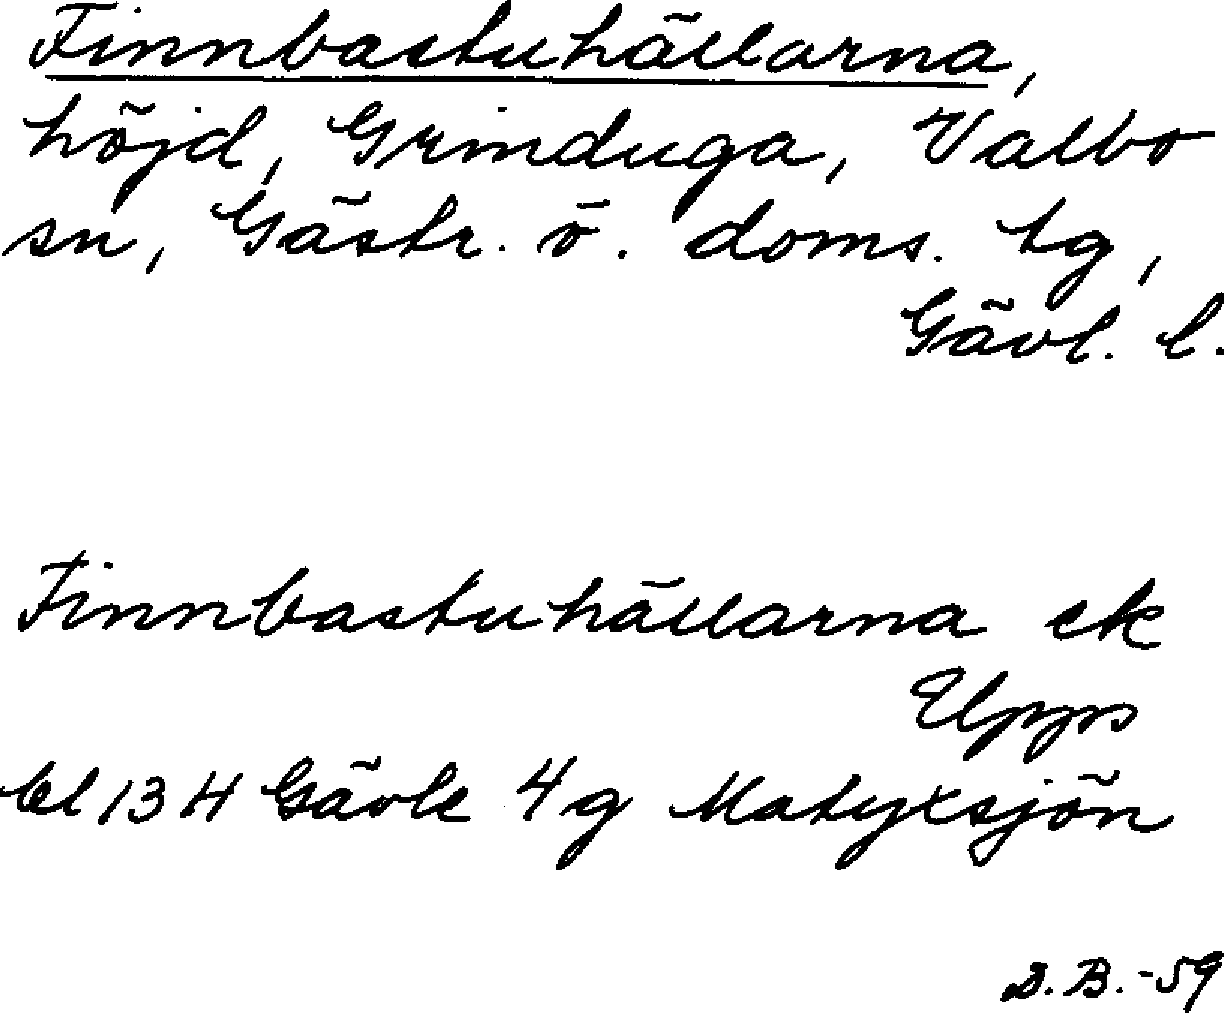 Finnbastuhällarna,
höjd, Grinduga, Valbo
sn, Gästr. ö. doms. tg,
Gävl. l.
Finnbastuhällarna ek
Upps
bl 13 H Gävle 4 g Matyxsjön
D.B. -59